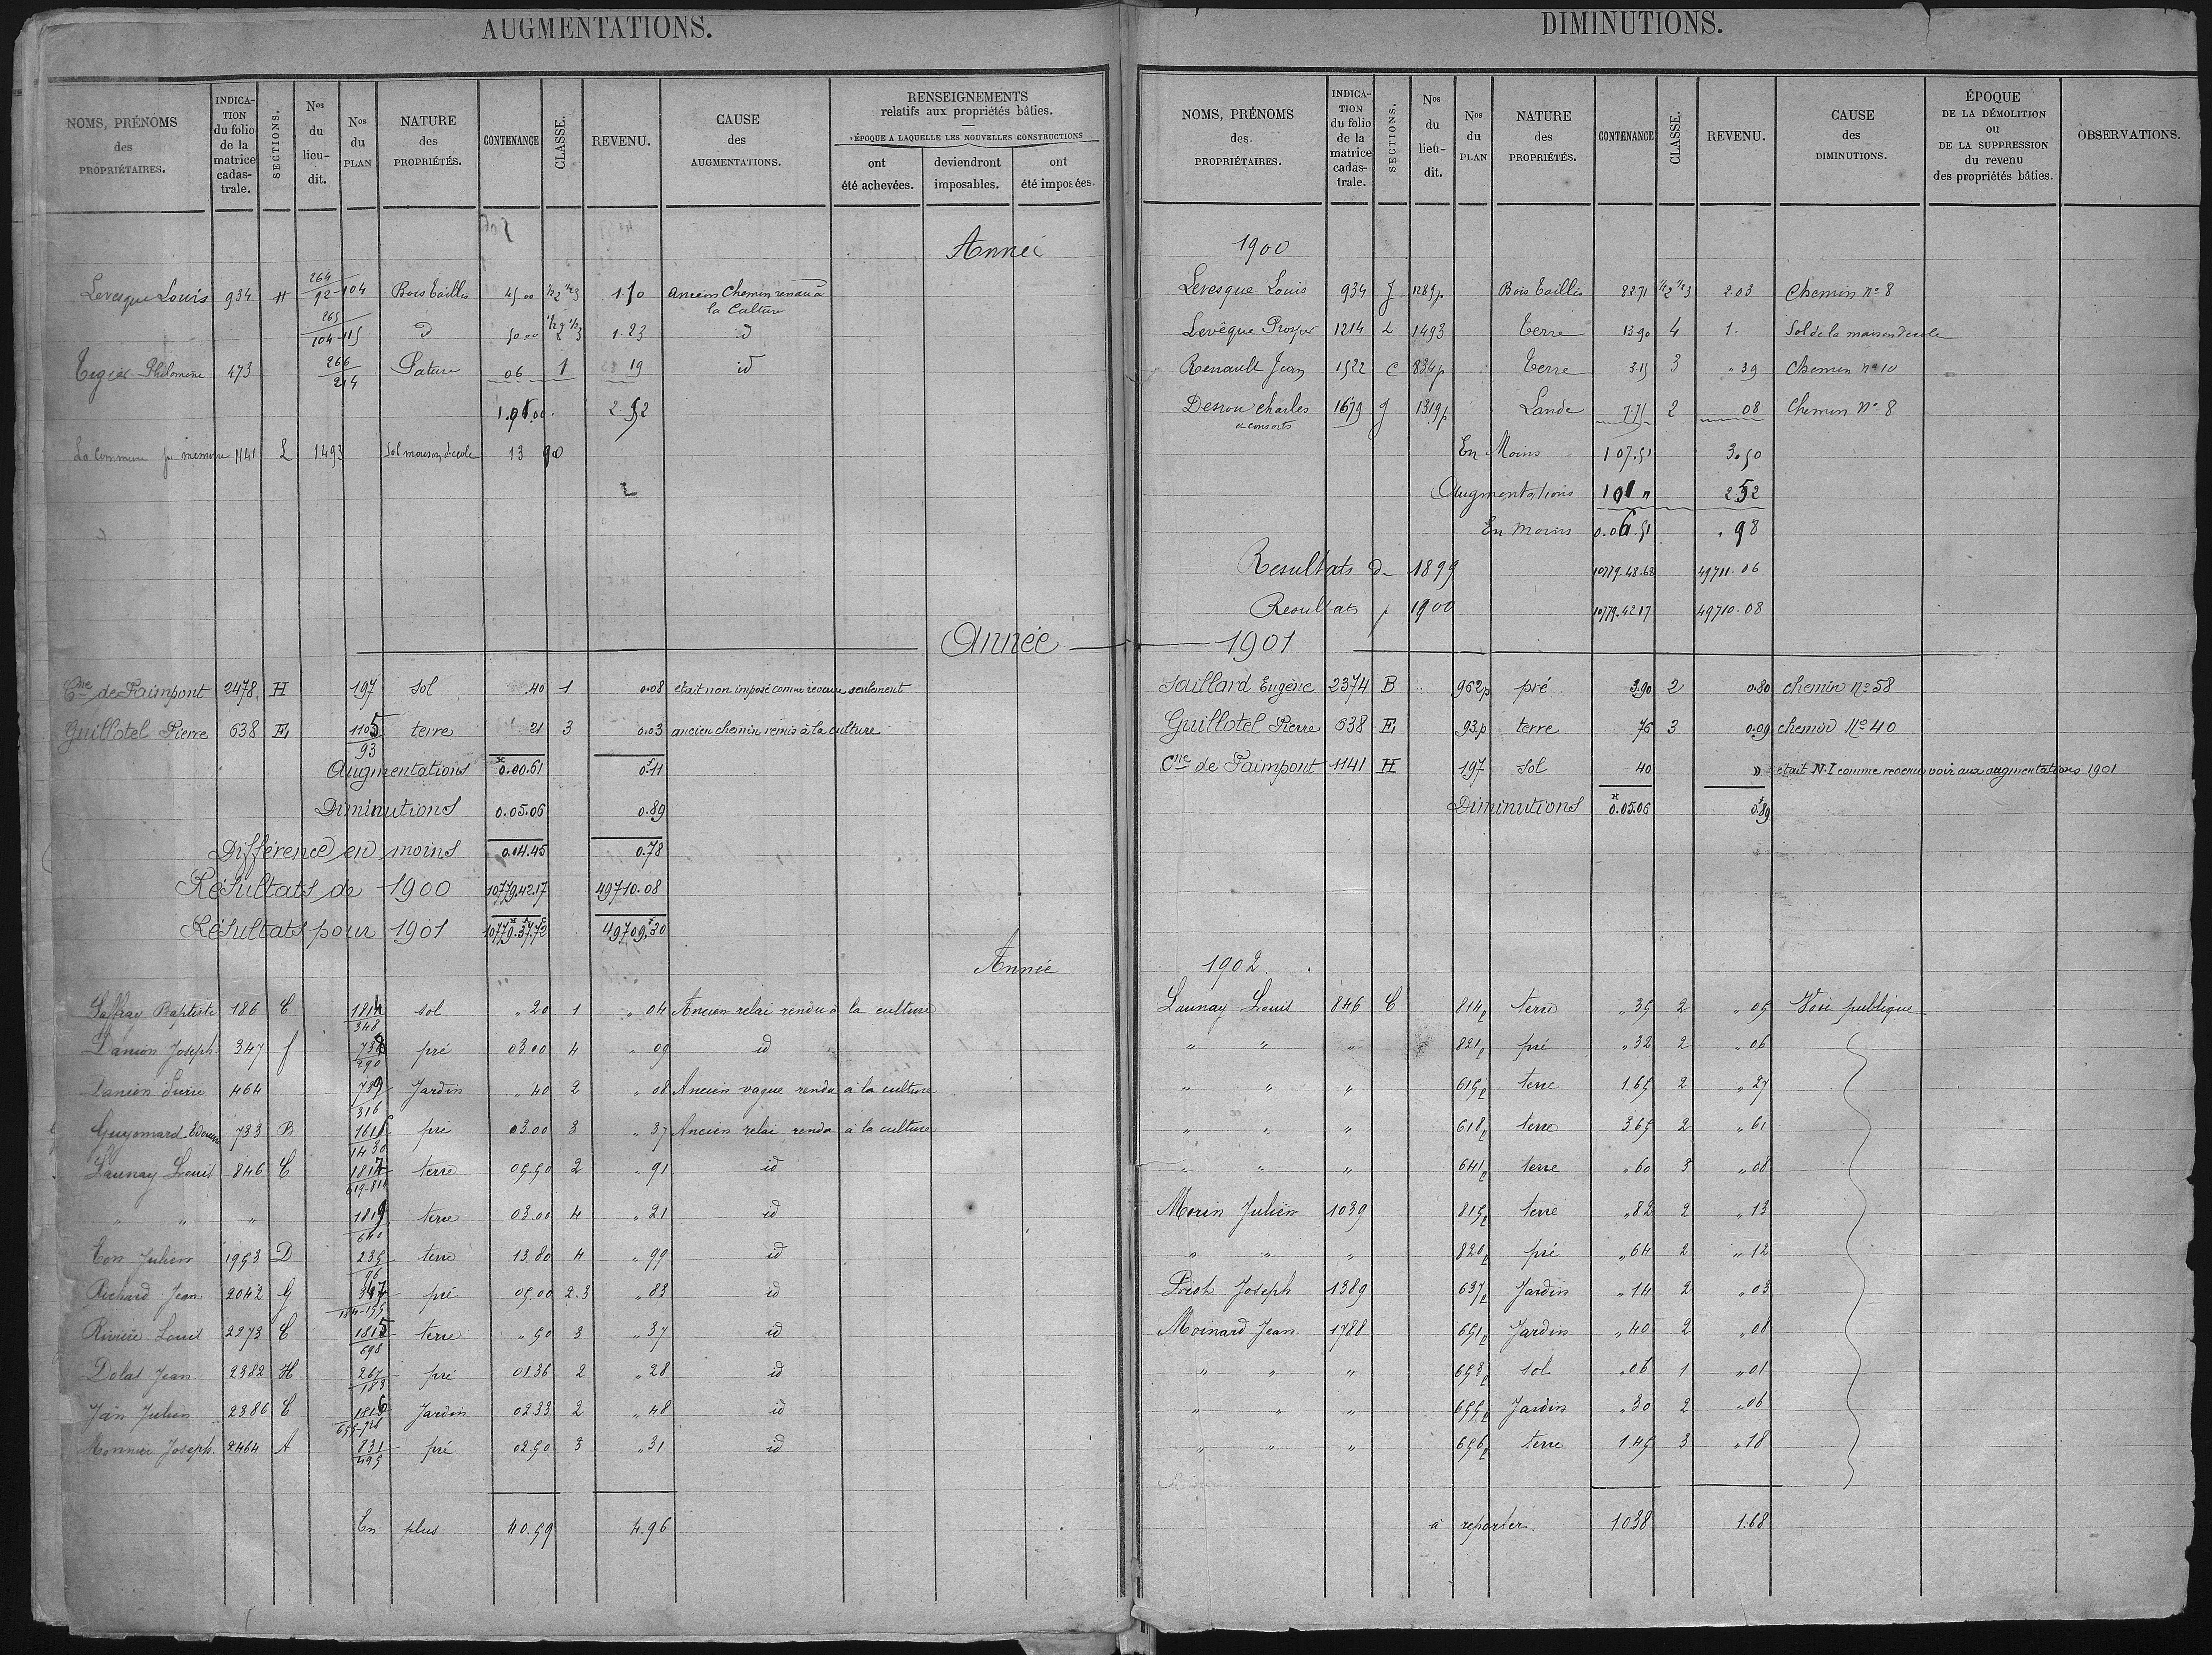 AUGMENTATIONS.
NOMS, PRÉNOMS des PROPRIÉTAIRES. INDICATION du folio de la matrice cadastrale. SECTIONS. Nos du lieu-dit. Nos du PLAN NATURE des PROPRIÉTÉS. CONTENANCE CLASSE. REVENU. CAUSE des AUGMENTATIONS. RENSEIGNEMENTS relatifs aux propriétés bâties. ÉPOQUE A LAQUELLE LES NOUVELLES CONSTRUCTIONS ont été achevées. deviendront imposables. ont été imposées.
Année
Levesque Louis 934 H 264 92-104 Bois taillis 45 00 ½2 ½3 1.10 ancien Chemin rendu à la Culture
265 104-115 d 50 00 ½2 ½3 1.23 d
Tigier Philomène 473 266 214 Pature 06 1 19 id
1.01.00 2.52
La Commune pr memoire 1141 L 1493 Sol maison d'ecole 13 90
Année
Cne de Paimpont 2478 H 197 sol .40 1 0.08 était non imposé comme revenu seulement
Guillotel Pierre 638 E 1105 93 terre 21 3 0.03 ancien chemin remis à la culture
Augmentations 0.00.61 0.11
Diminutions 0.05.06 0.89
Différence en moins 0.04.45 0.78
Résultats de 1900 10779.42.17 49710.08
Résultats pour 1901 10779.37.72 49709.30
Année
Saffray Baptiste 186 C 1814 348 sol " 20 1 " 04 Ancien relai rendu à la culture
Danion Joseph 347 f 738 290 pré 03.00 4 " 09 id
Danion Pierre 464 739 316 Jardin " 40 2 " 08 Ancien vague rendu à la culture
Guyomard Edouard 733 B 1618 1430 pré 03.00 3 " 37 Ancien relai rendu à la culture
Launay Louis 846 C 1817 619-814 terre 05.50 2 " 91 id
" " " 1819 640 terre 03.00 4 " 21 id
Eon Julien 1953 D 235 96 terre 13.80 4 " 99 id
Richard Jean 2042 G 347 184-155 pré 05.00 2.3 " 83 id
Rivière Louis 2273 C 1815 698 terre " 50 3 " 37 id
Dolat Jean 2382 H 267 183 pré 01.36 2 " 28 id
Jan Julien 2386 C 1816 Jardin 02.33 2 " 48 id
Monnier Joseph 2464 A 831 495 pré 02.50 3 " 31 id
En plus 40.59 4.96
DIMINUTIONS.
NOMS, PRÉNOMS des PROPRIÉTAIRES. INDICATION du folio de la matrice cadastrale. SECTIONS. Nos du lieu-dit. Nos du PLAN NATURE des PROPRIÉTÉS. CONTENANCE CLASSE. REVENU. CAUSE des DIMINUTIONS. ÉPOQUE DE LA DÉMOLITION ou DE LA SUPPRESSION du revenu des propriétés bâties. OBSERVATIONS.
1900
Levesque Louis 934 J 1289p Bois taillis 8271 ½2 ½3 2.03 Chemin no 8
Levêque Prosper 1214 L 1493 Terre 1390 4 1. Sol de la maison d'ecole
Renault Jean 1522 C 834p Terre 3.15 3 " 39 Chemin no 10
Derrou Charles 1679 g 1319p Lande 7.75 2 08 Chemin No 8
& consorts
En Moins 107.51 3.50
Augmentations 101 " 252
En moins 0.06.51 . 98
Resultats de 1899 10779.48.68 49711.06
Resultats pr 1900 10779.42.17 49710.08
1901
Saillard Eugène 2374 B 962p pré 3.90 2 0.80 chemin no 58
Guillotel Pierre 638 E 93p terre 76 3 0.09 chemin No 40
Cne de Paimpont 1141 H 197 sol 40 » était N.I comme revenu voir aux augmentations 1901
Diminutions 0.05.06 0.89
1902
Launay Louis 846 C 814p terre " 35 2 " 05 Voie publique
" " " 821p pré " 32 2 " 06
" " " 615p terre 1.65 2 " 27
" " " 618p terre 3.65 2 " 61
" " " 641p terre " 60 3 " 08
Morin Julien 1039 815p terre " 82 2 " 13
" " " 820p pré " 64 2 " 12
Poirot Joseph 1389 637p Jardin " 14 2 " 03
Moinard Jean 1788 651p Jardin " 40 2 " 08
" " " 653p sol " 06 1 " 01
" " " 655p Jardin " 30 2 " 06
" " " 656p terre 1.45 3 " 18
à reporter 1038 1.68